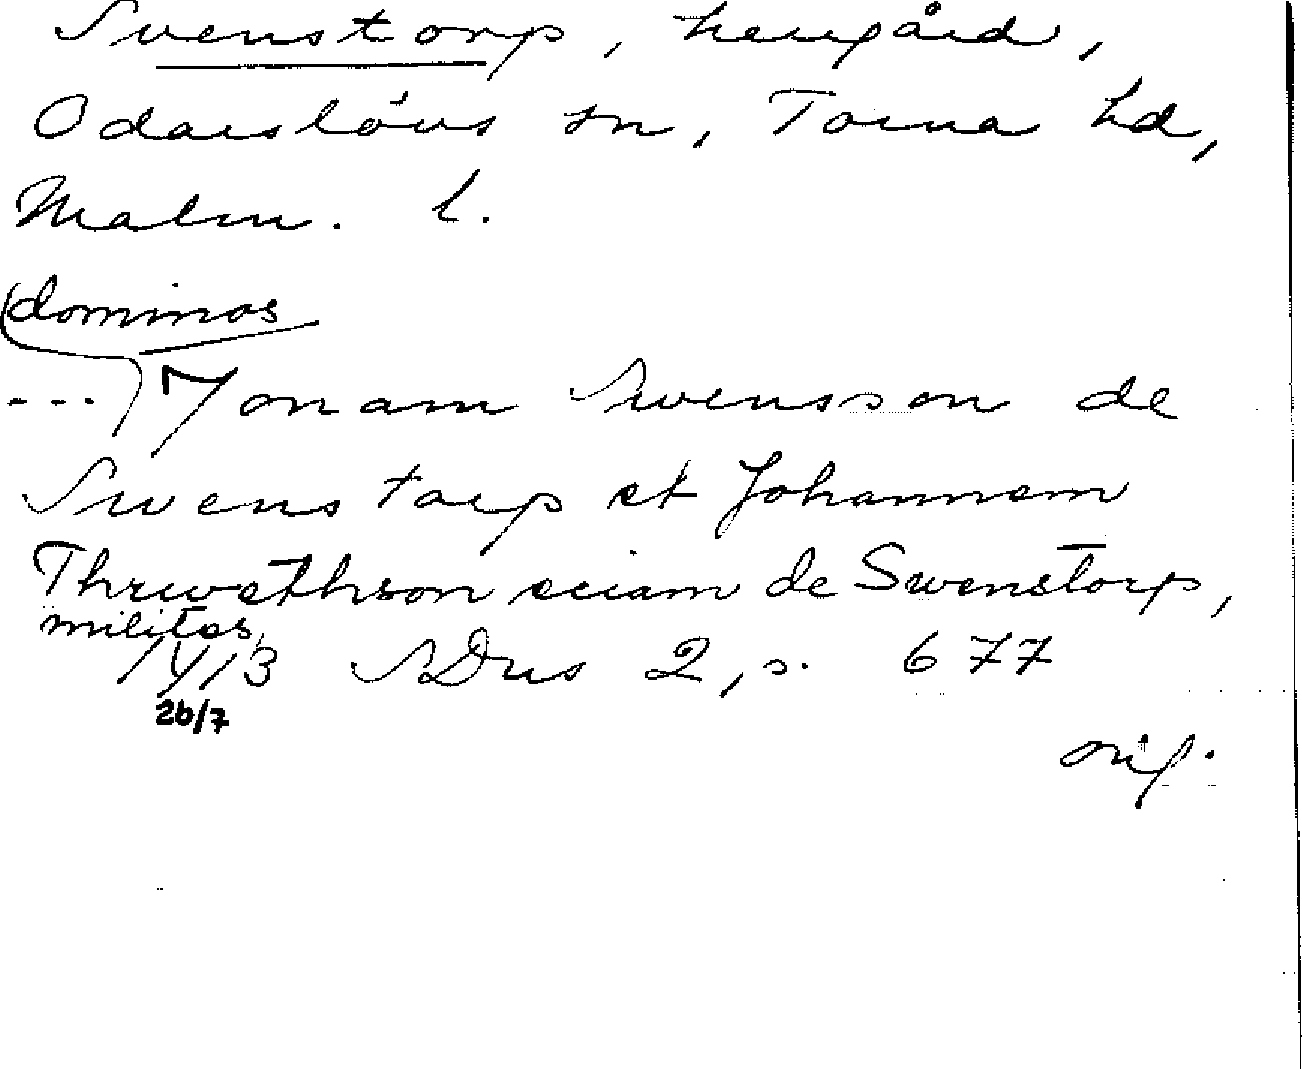 Svenstorp, herrgård,
Odarslövs sn, Torna hd,
Malm. l.
dominos
--- Jonam Swensson de
Swenstorp et Johannem
Thruwethson eciam de Swenstorp,
milites,
1413 SDns 2, s. 677
26/7
orig.